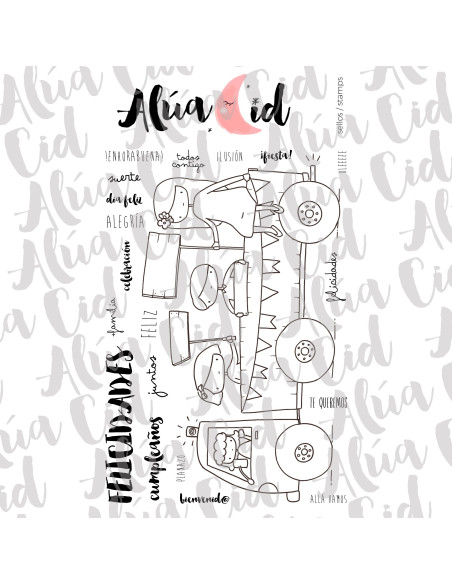 Alúa Cid
sellos / stamps
¡ENHORABUENA!
todos
contigo
ILUSIÓN
¡fiesta!
OLEEEE
suerte
día feliz
ALEGRÍA
celebración
familia
FELIZ
felicidades
FELICIDADES
juntos
cumpleaños
TE QUEREMOS
bienvenid@
ALLÁ VAMOS